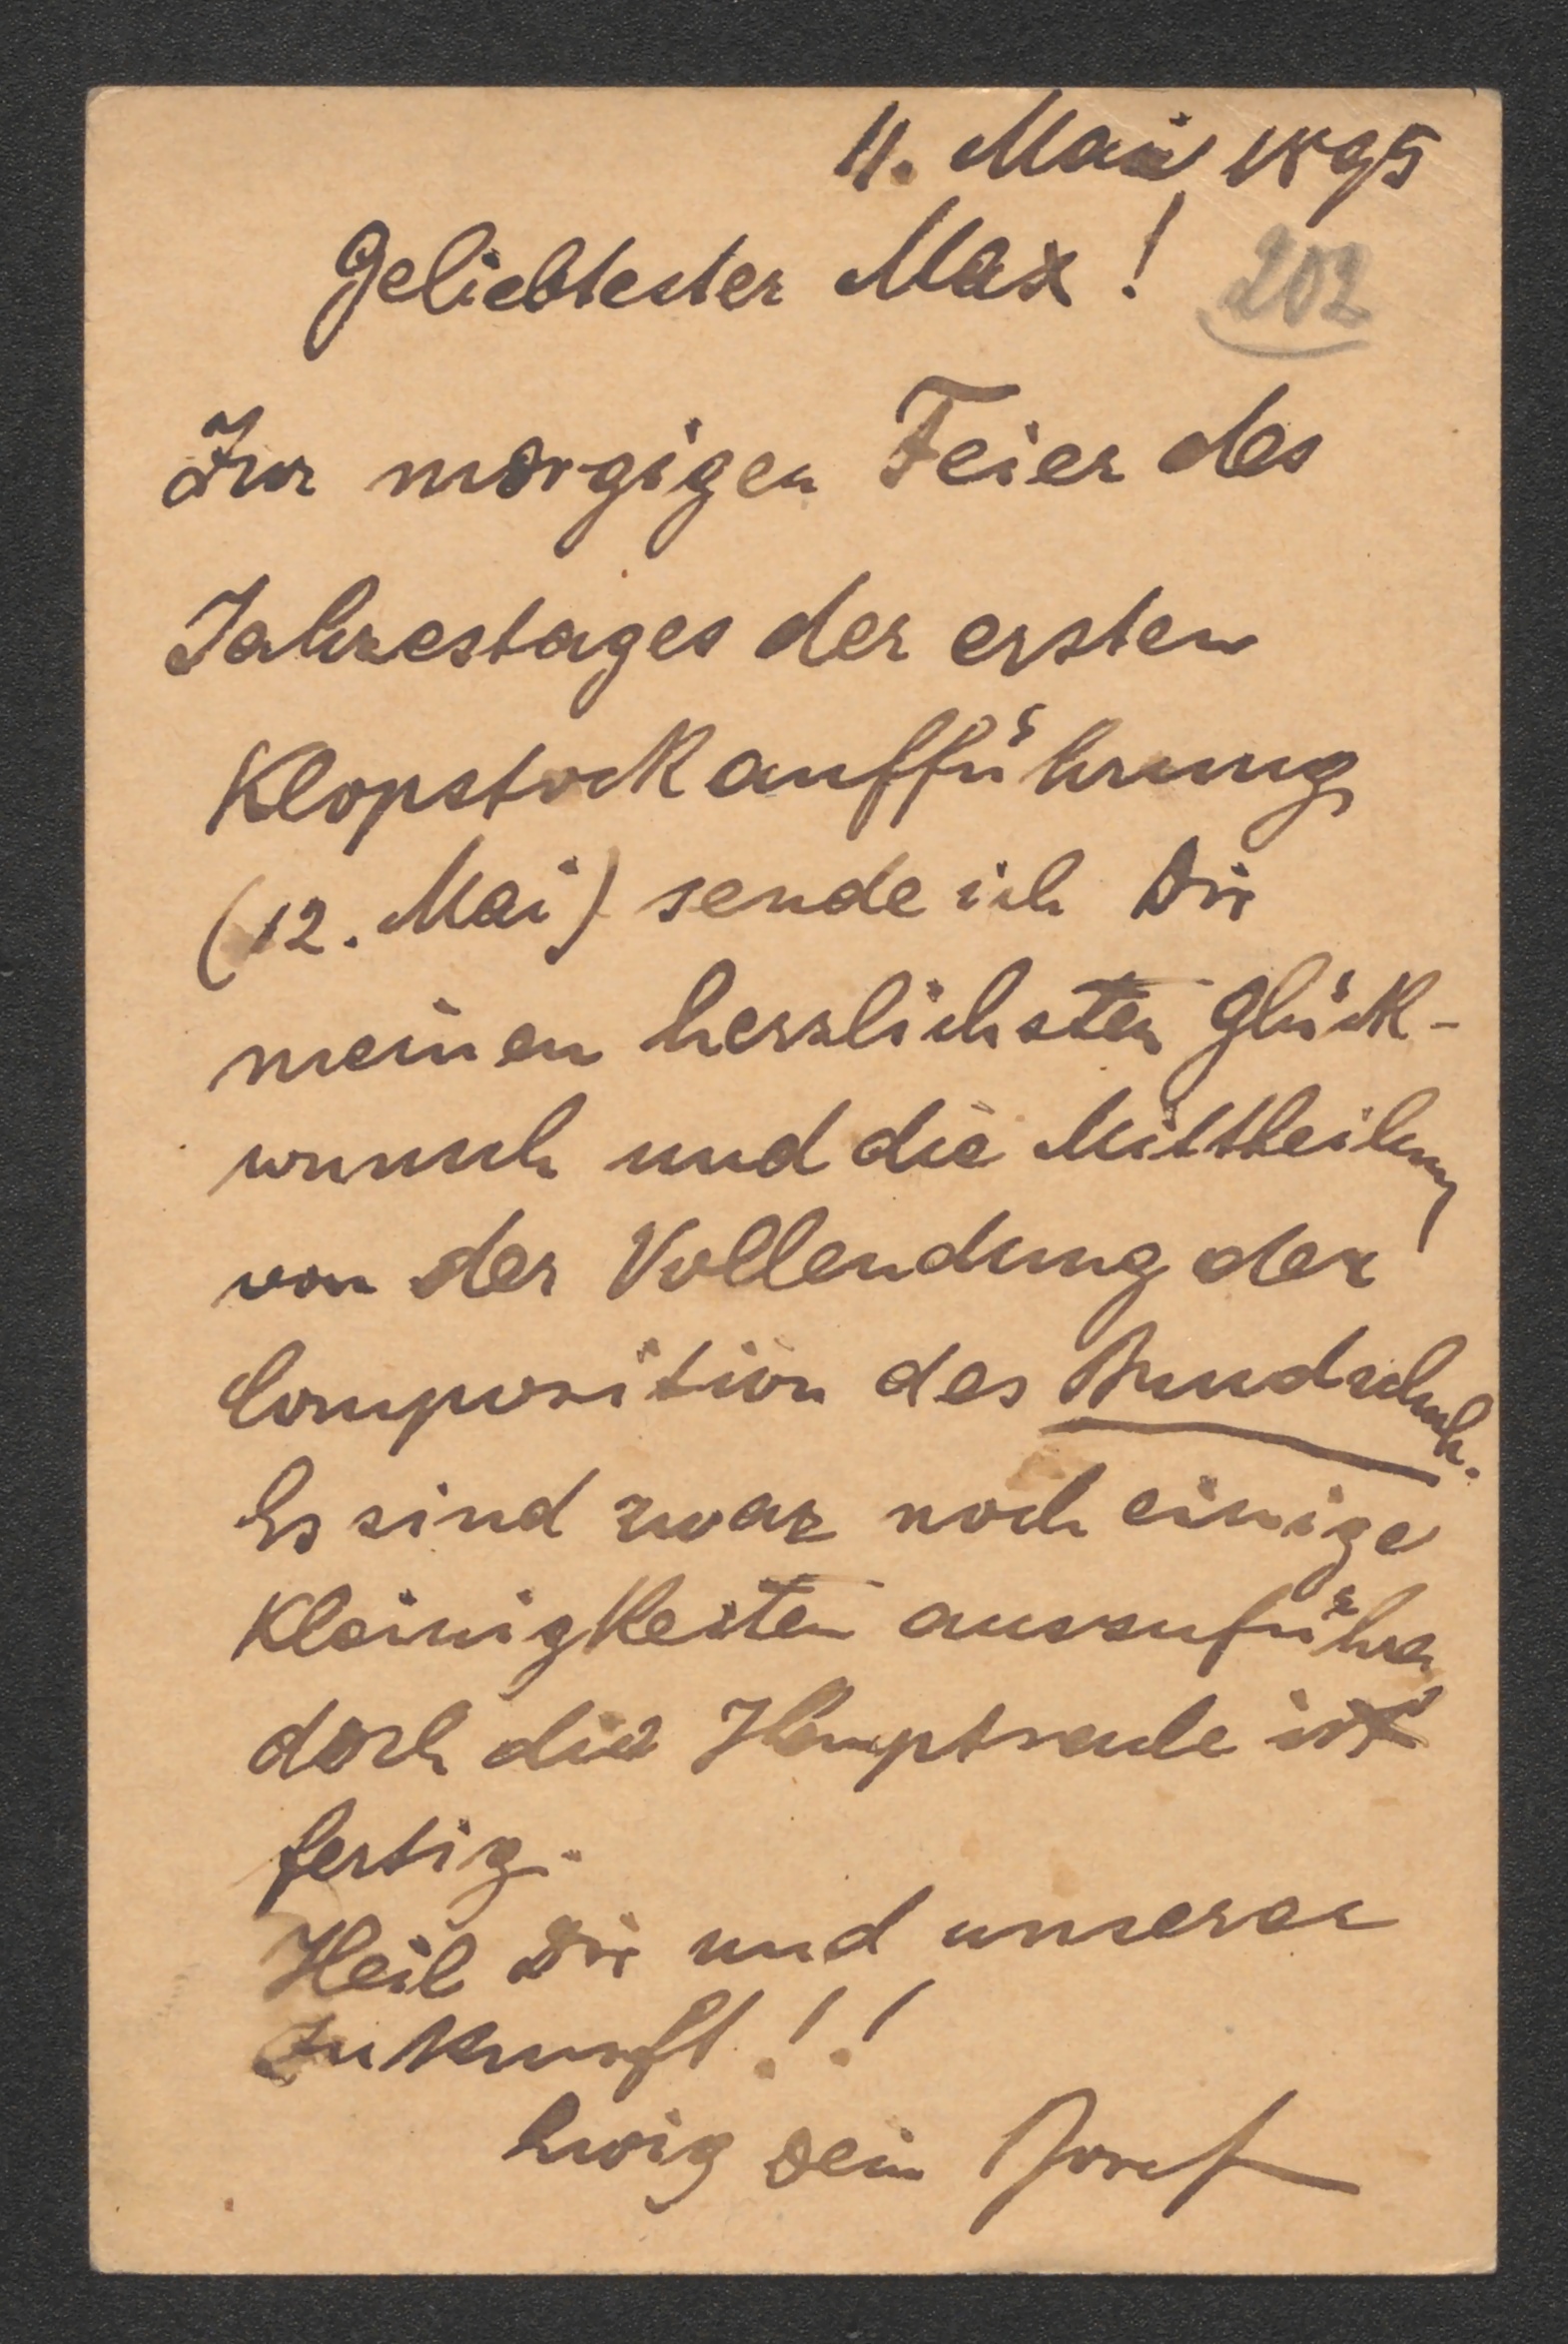 11. Mai 1895
Geliebtester Max!
202
Zur morgigen Feier des
Jahrestages der ersten
Klopstockaufführung
(12. Mai) sende ich Dir
meinen herzlichsten Glück-
wunsch und die Mittheilung
von der Vollendung der
Composition des Bundschuh.
Es sind zwar noch einige
Kleinigkeiten auszuführen
doch die Hauptsache ist
fertig.
Heil Dir und unserer
Zukunft!!
Ewig Dein Josef